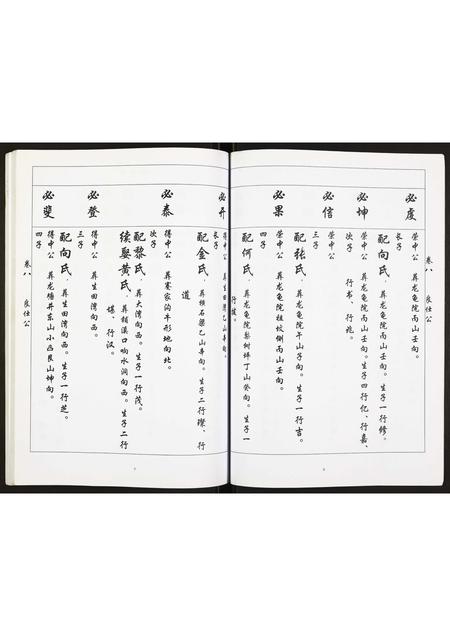 卷八 良仕公
必虔
荣中公长子 葬龙龟院丙山壬向。
配向氏，葬龙龟院丙山壬向。生子一行修。
必坤
荣中公次子 葬龙龟院丙山壬向。生子四行亿、行嘉、
行书、行兆。
必信
荣中公三子
配张氏，葬龙龟院午山子向。生子一行吉。
必果
荣中公四子 葬龙龟院祖坟侧丙山壬向。
配何氏，葬龙龟院梨树坪丁山癸向。生子一
行拔。
必升
得中公长子 葬生田湾乙山辛向。
配金氏，葬横石梁乙山辛向。生子二行璨、行
道
必泰
得中公次子 葬蹇家沟牛形地向北。
配黎氏，葬大湾向西。生子一行茂。
续娶黄氏，葬榆溪口响水洞向西。生子二行
煤、行汉。
必登
得中公三子 葬生田湾向西。
配向氏，葬生田湾向西。生子一行芝。
必斐
得中公四子 葬龙桶井东山小凸艮山坤向。
卷八 良仕公